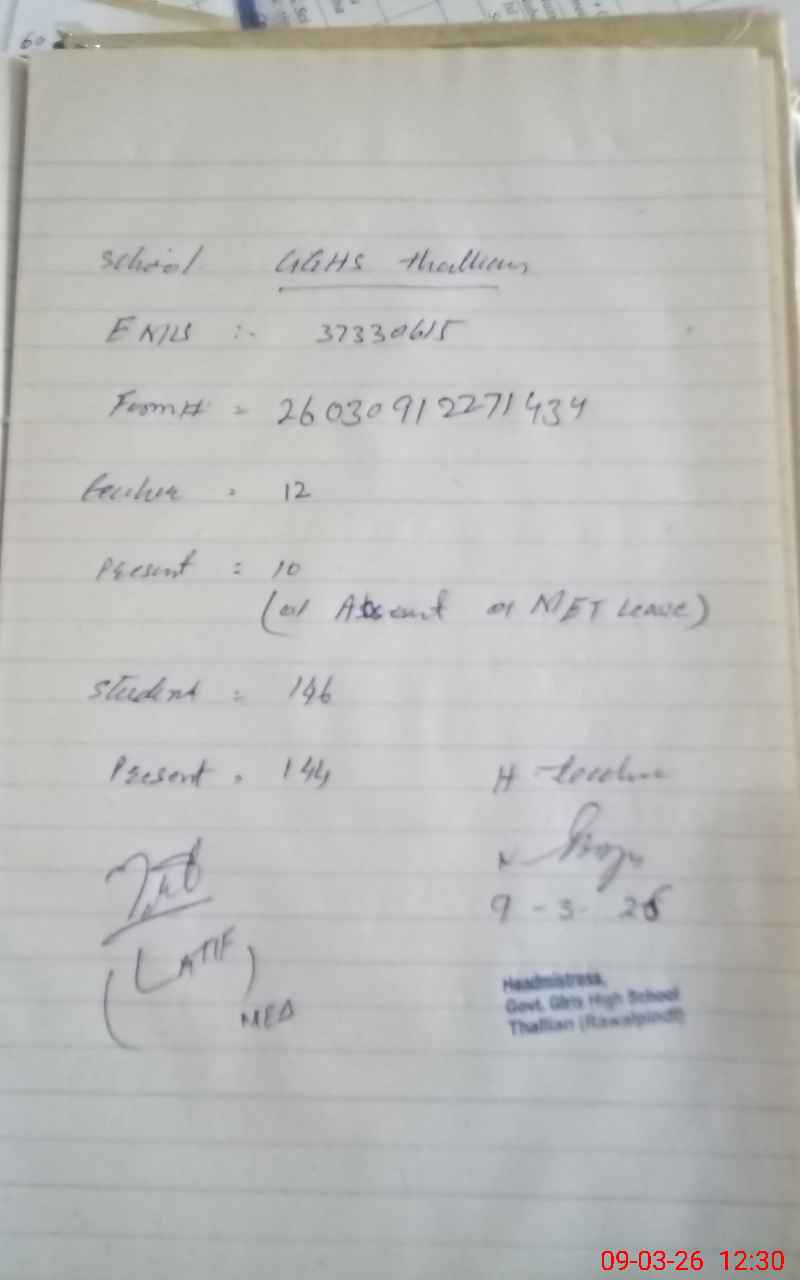 60
School GGHS Thallian
EMIS :- 37330615
Form # = 26030912271434
teacher = 12
Present = 10
(01 Absent 01 MET Leave)
Student = 146
Present = 144
H teacher
9-3-26
(LATIF)
MEA
Headmistress,
Govt. Girls High School
Thallian (Rawalpindi)
09-03-26 12:30